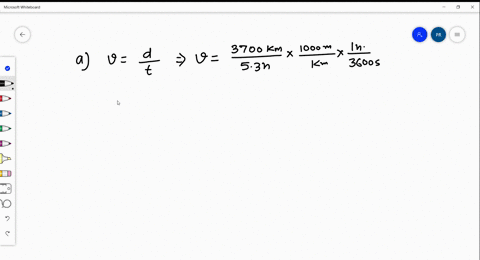 Microsoft Whiteboard
a) v = d/t ⇒ v = 3700 Km/5.3h × 1000 m/Km × 1h./3600s